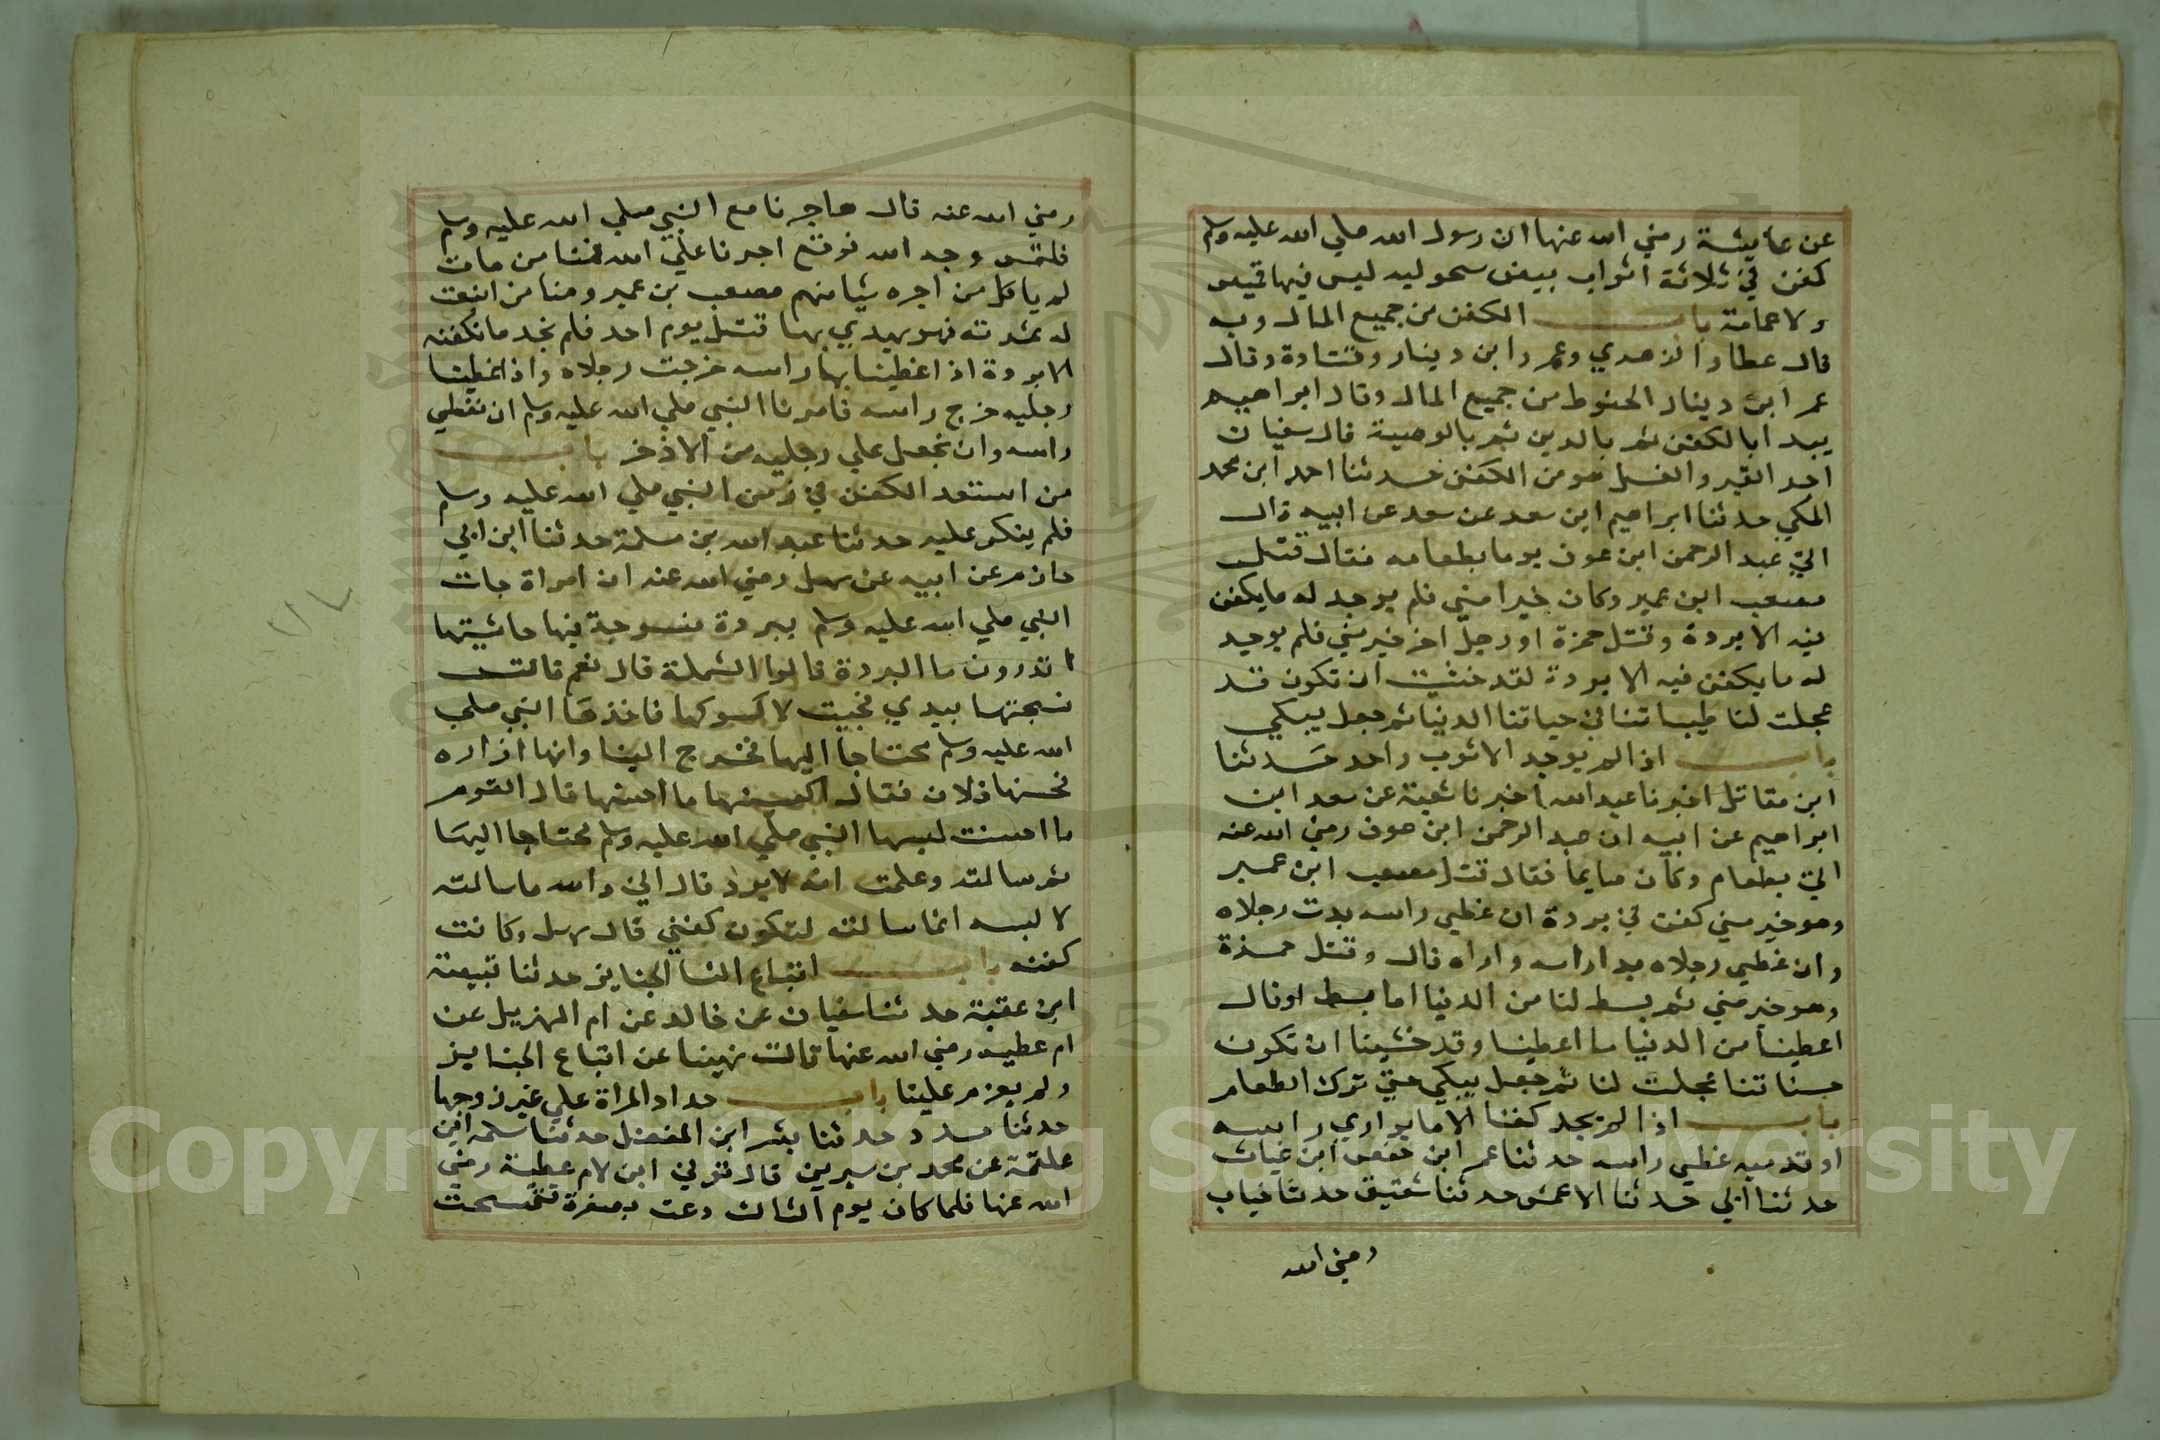 عن عايشة رضي الله عنها ان رسول الله صلي الله عليه وسلم
كفن في ثلاثة اثواب بيض سحوليه ليس فيها قميص
ولا عمامة باب الكفن من جميع المال وبه
قال عطا والزهدي وعمر وابن دينار وقتادة وقال
عمر ابن دينار الحنوط من جميع المال وقال ابراهيم
يبد ابا لكفن ثم بالدين ثم بالوصية قال سفيان
اجر القبر والغسل هو من الكفن حدثنا احمد ابن محمد
المكي حدثنا ابراهيم ابن سعد عن سعد عن ابيه قال
اتي عبد الرحمن ابن عوف يوما بطعامه فقال قتل
مصعب ابن عمير وكان خيرا مني فلم يوجد له ما يكفن
فيه الا بردة وقتل حمزة او رجل اخر خير مني فلم يوجد
له ما يكفن فيه الا بردة لقد خشيت ان تكون قد
عجلت لنا طيباتنا في حياتنا الدنيا ثم جعل يبكي
باب اذا لم يوجد الا ثوب واحد حدثنا
ابن مقاتل اخبرنا عبد الله اخبرنا شعبة عن سعد ابن
ابراهيم عن ابيه ان عبد الرحمن ابن عوف رضي الله عنه
اتي بطعام وكان صايما فقال قتل مصعب ابن عمير
وهو خير مني كفن في بردة ان غطي راسه بدت رجلاه
وان غطي رجلاه بدا راسه واراه قال وقتل حمزة
وهو خير مني ثم بسط لنا من الدنيا اما بسط او قال
اعطينا من الدنيا ما اعطينا وقد خشينا ان تكون
حسناتنا عجلت لنا ثم جعل يبكي حتي ترك الطعام
باب اذا لم يجد كفنا الا ما يواري راسه
او قدميه غطي راسه حدثنا عمر ابن حفص ابن غياث
حدثنا ابي حدثنا الاعمش حدثنا شقيق حدثنا خباب
رضي الله
رضي الله عنه قال هاجرنا مع النبي صلي الله عليه وسلم
فلتمس وجه الله فوقع اجرنا علي الله فمنا من مات
لم ياكل من اجره شيا منهم مصعب بن عمير ومنا من اينعت
له ثمرته فهو يهدي بها قتل يوم احد فلم نجد ما نكفنه
الا بردة اذا غطينا بها راسه خرجت رجلاه واذا غطينا
رجليه خرج راسه فامرنا النبي صلي الله عليه وسلم ان نغطي
راسه وان نجعل علي رجليه من الاذخر باب
من استعد الكفن في زمن النبي صلي الله عليه وسلم
فلم ينكر عليه حدثنا عبد الله بن مسلمة حدثنا ابن ابي
حازم عن ابيه عن سهل رضي الله عنه ان امراة جات
النبي صلي الله عليه وسلم ببردة منسوجة فيها حاشيتها
اتدرون ما البردة قالوا الشملة قال نعم قالت
نسجتها بيدي فجيت لاكسوكها فاخذها النبي صلي
الله عليه وسلم محتاجا اليها فخرج الينا وانها ازاره
فحسنها فلان فقال اكسنيها ما احسنها قال القوم
ما احسنت لبسها النبي صلي الله عليه وسلم محتاجا اليها
ثم سالته وعلمت انه لا يرد قال اني والله ما سالته
لا لبسه انما سالته لتكون كفني قال سهل وكانت
كفنه باب اتباع النسا الجنايز حدثنا قبيصة
ابن عقبة حدثنا سفيان عن خالد عن ام الهزيل عن
ام عطيه رضي الله عنها قالت نهينا عن اتباع الجنايز
ولم يعزم علينا باب حداد المراة علي غير زوجها
حدثنا مسدد حدثنا بشر ابن المفضل حدثنا سلمه ابن
علقمة عن محمد بن سيرين قال توفي ابن لام عطية رضي
الله عنها فلما كان يوم الثالث دعت بصفرة فتمسحت
Copyright © King Saud University